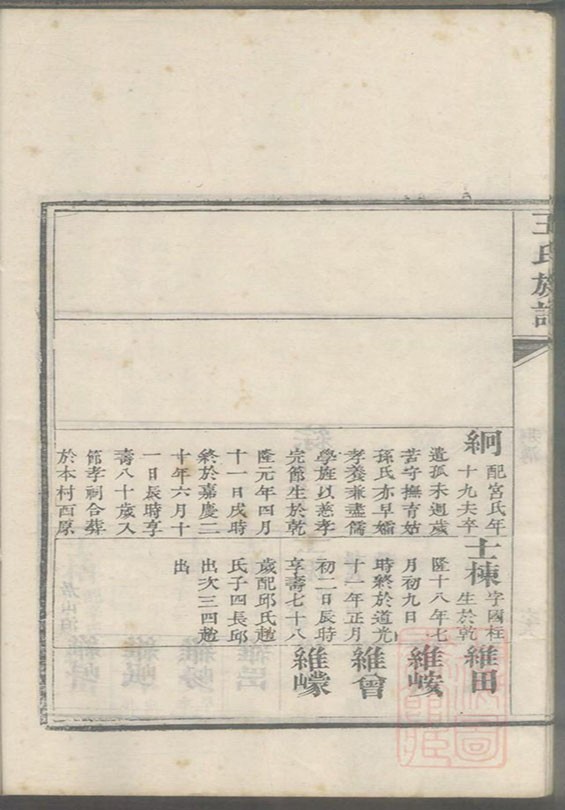 王氏族譜
絅
配宮氏年
十九夫卒
遺孤未週歲
苦守撫育姑
孫氏亦早孀
孝養兼盡儒
學旌以慈孝
完節生於乾
隆元年四月
十一日戌時
終於嘉慶二
十年六月十
一日辰時享
壽八十歲入
節孝祠合葬
於本村西原
士棟
字國柱
生於乾
隆十八年七
月初九日
時終於道光
十一年正月
初二日辰時
享壽七十八
歲配邱氏趙
氏子四長邱
出次三四趙
出
維田
維峻
維曾
維蠓